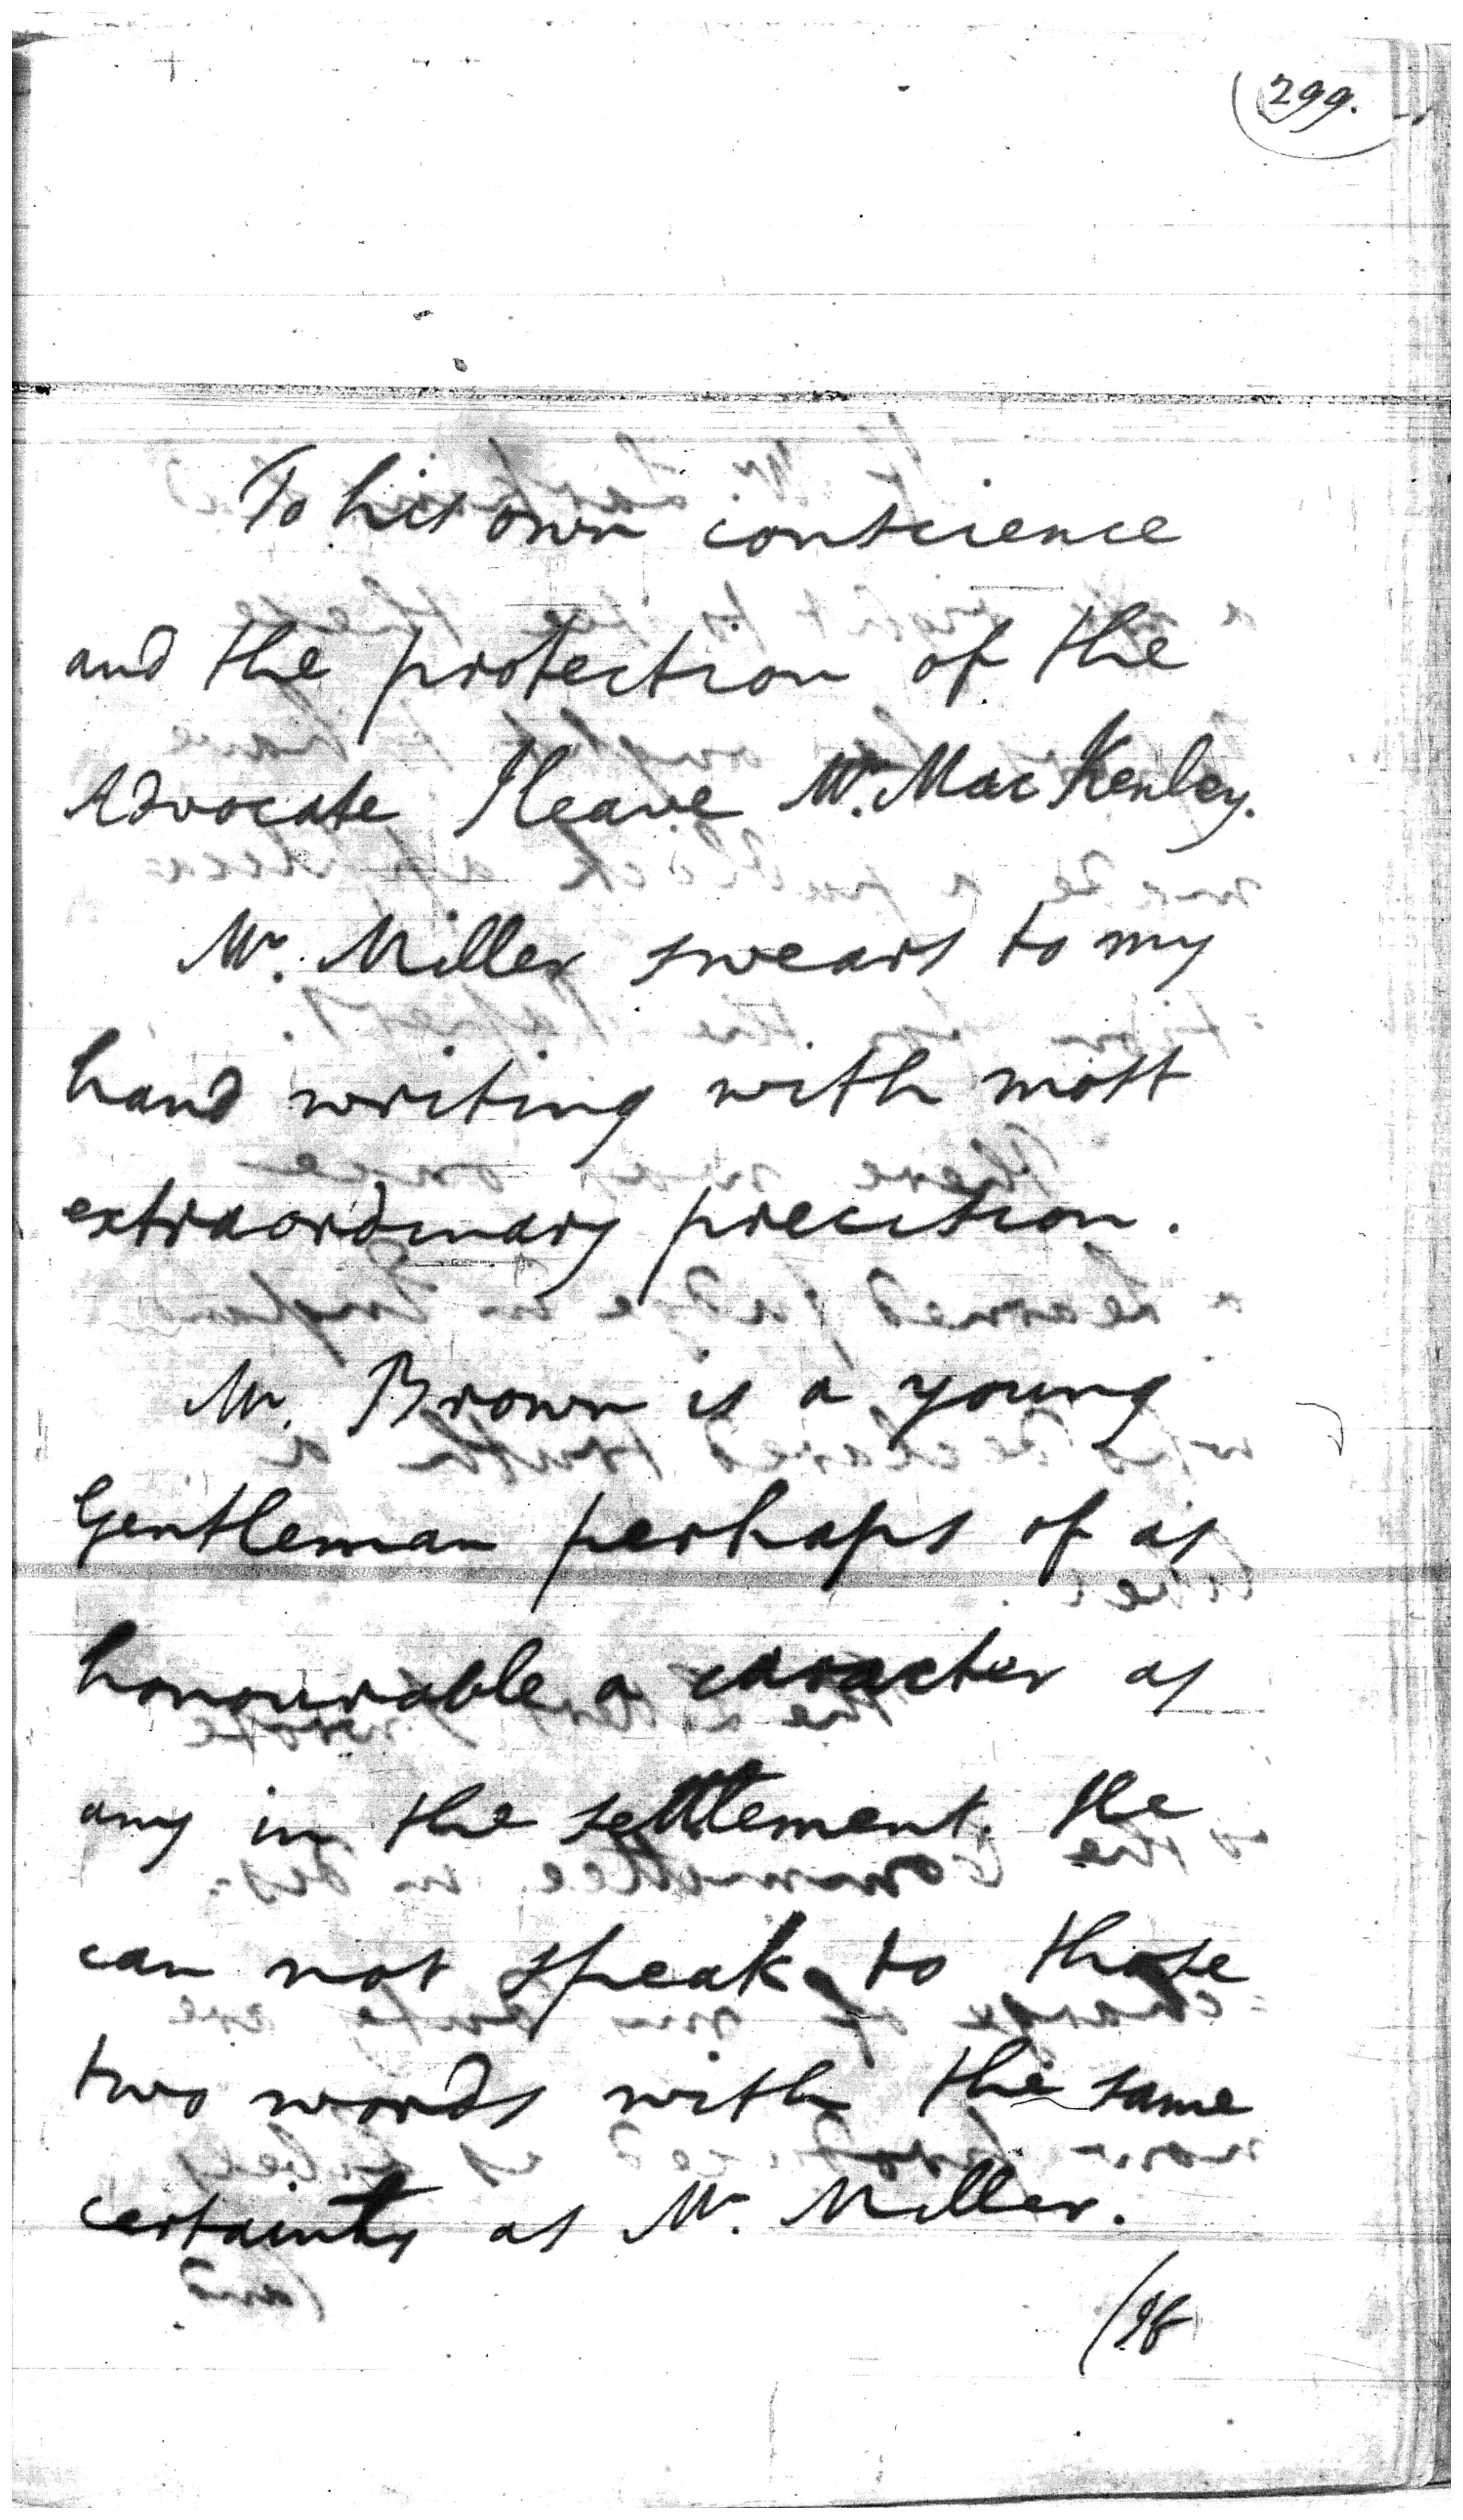 299.
To his own conscience
and the protection of the
Advocate I leave Mr. MacKenley.
Mr. Miller swears to my
hand writing with most
extraordinary precition.
Mr. Brown is a young
Gentleman perhaps of as
honourable a caracter as
any in the settlement. He
can not speak to those
two words with the same
certainty as Mr. Miller.
/If